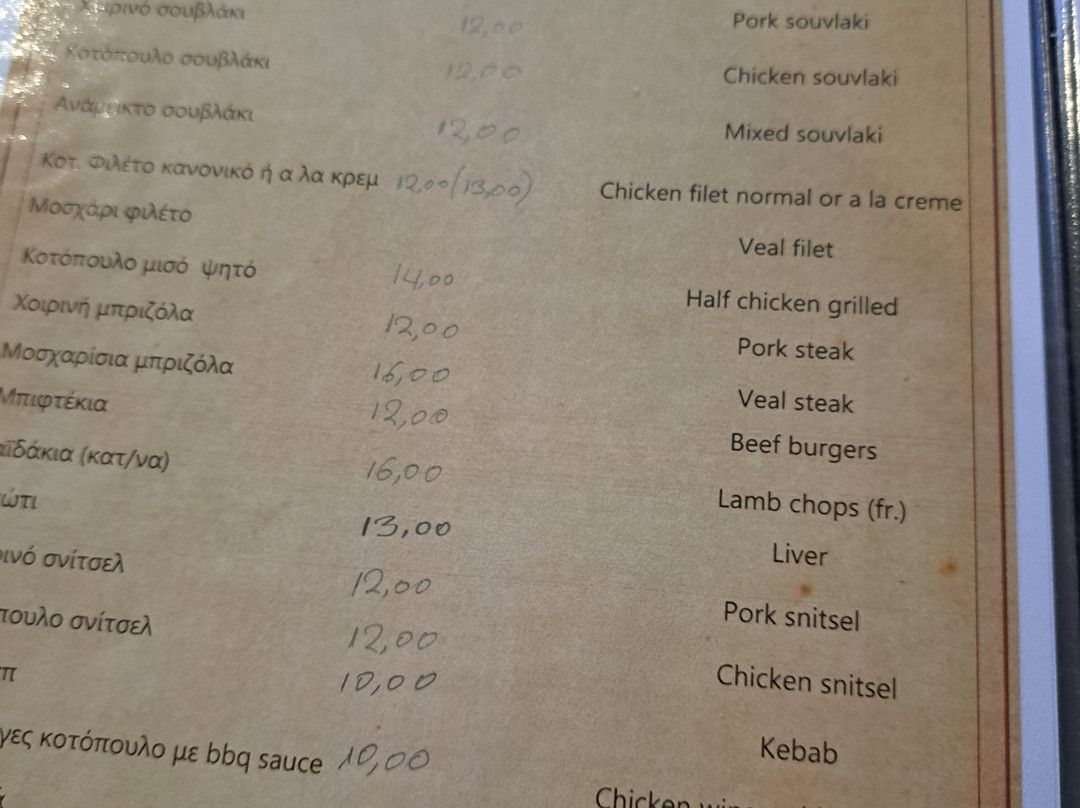 Χοιρινό σουβλάκι 12,00 Pork souvlaki
Κοτόπουλο σουβλάκι 12,00 Chicken souvlaki
Ανάμεικτο σουβλάκι 12,00 Mixed souvlaki
Κοτ. Φιλέτο κανονικό ή α λα κρεμ 12,00 (13,00) Chicken filet normal or a la creme
Μοσχάρι φιλέτο Veal filet
Κοτόπουλο μισό ψητό 14,00 Half chicken grilled
Χοιρινή μπριζόλα 12,00 Pork steak
Μοσχαρίσια μπριζόλα 16,00 Veal steak
Μπιφτέκια 12,00 Beef burgers
αϊδάκια (κατ/να) 16,00 Lamb chops (fr.)
ώτι 13,00 Liver
ινό σνίτσελ 12,00 Pork snitsel
πουλο σνίτσελ 12,00 Chicken snitsel
π 10,00 Kebab
γες κοτόπουλο με bbq sauce 10,00 Chicken